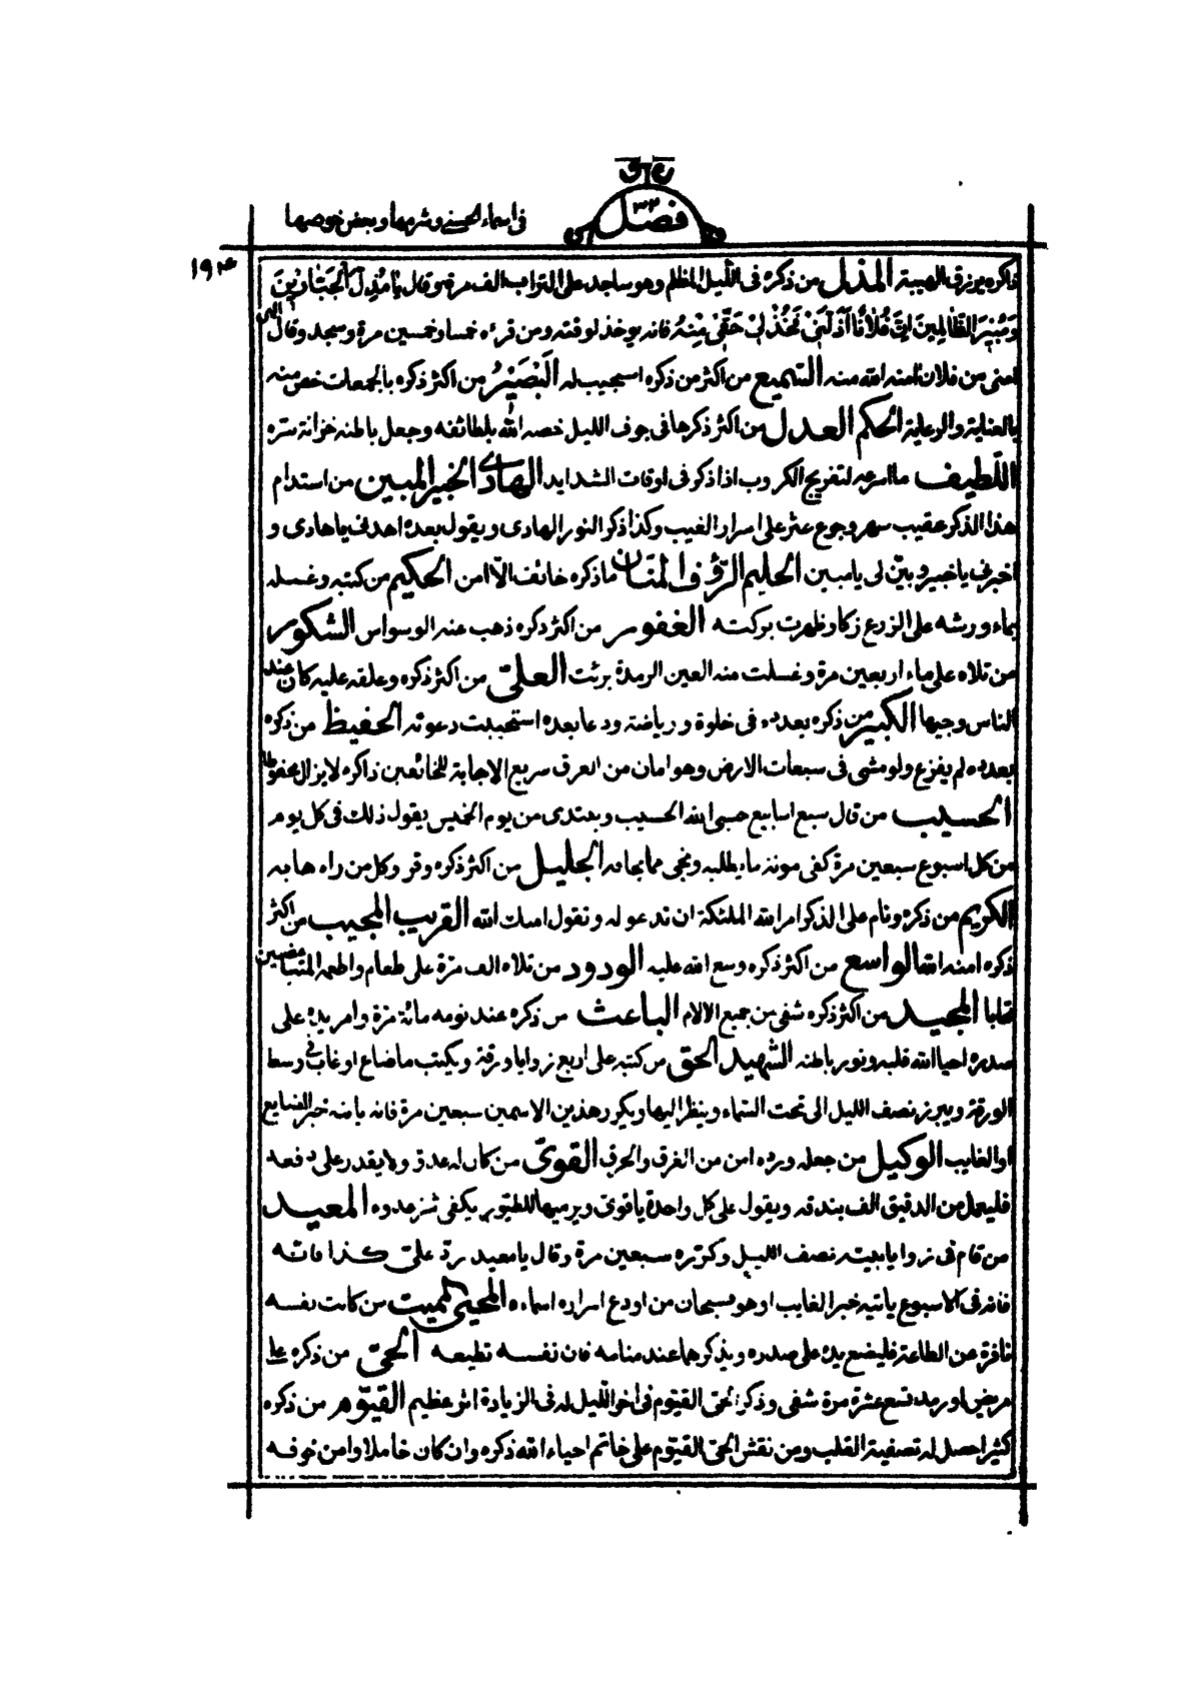 فصل ٣٢
فى اسماء الحسنى و شرحها و بعض خوصها
١٩٤
ذاكره يورزق الهيبة المذل من ذكره فى اللّيل المظلم وهو ساجد على التراب الف مرة وقال يا مُذِلَّ الجَبّارينَ
وَمُبيرَ الظّالِمينَ اِنَّ فُلاناً اَذَلَّنى فَخُذْ لى حَقّى مِنْهُ فانه يوخذ لوقته ومن قرءه خمسا وخمسين مرة وسجد وقال الهى
امنى من فلان امنه الله منه السّميع من اكثر من ذكره استجيب له اَلْبَصيرُ من اكثر ذكره بالجمعات خص منه
بالعناية والرعاية الحكم العدل من اكثر ذكرها فى جوف الليل خصه الله بلطائفه وجعل باطنه خزانة سره
اللّطيف ما اسرعه لتفريج الكروب اذا ذكر فى اوقات الشدايد الهادى الخبير المبين من استدام
هذا الذكر عقيب سهر وجوع عثر على اسرار الغيب وكذا ذكر النور الهادى ويقول بعده اهدنى يا هادى و
اخبرنى يا خبير و بيّن لى يا مبين الحليم الرّؤف المنّان ما ذكره خائف الّا امن الحكيم من كتبه وغسله
بماء ورشه على الزرع زكا وظهرت بركته الغفور من اكثر ذكره ذهب عنه الوسواس الشكور
من تلاه على ماء اربعين مرة وغسلت منه العين الرمدة برئت العلىّ من اكثر ذكره وعلقه عليه كان عند
الناس وجيها الكبير من ذكره بعدده فى خلوة و رياضة ودعا بعده استجيبت دعوته الحفيظ من ذكره
بعدده لم يفزع ولو مشى فى سبعات الارض وهو امان من الغرق سريع الاجابة للخائفين ذاكره لا يزال محفوظا
الحسيب من قال سبع اسابيع حسبى الله الحسيب ويبتدى من يوم الخميس يقول ذلك فى كل يوم
من كل اسبوع سبعين مرة كفى مونة ما يطلبه ونجى مما يخافه الجليل من اكثر ذكره وقر وكل من راه هابه
الكريم من ذكره ونام على الذكر امر الله الملئكة ان تدعو له وتقول امنك الله القريب المجيب من اكثر
ذكره امنه الله الواسع من اكثر ذكره وسع الله عليه الودود من تلاه الف مرّة على طعام واطعمه المتباغضين
تحابا المجيد من اكثر ذكره شفى من جميع الالام الباعث من ذكره عند نومه مائة مرّة وامر يده على
صدره احيا الله قلبه ونور باطنه الشهيد الحق من كتبه على اربع زوايا ورقة ويكتب ما ضاع او غاب فى وسط
الورقة ويبرز نصف الليل الى تحت السّماء وينظر اليها ويكرر هذين الاسمين سبعين مرة فانه ياتيه خبر الضايع
او الغايب الوكيل من جعله ورده امن من الغرق والحرق القوىّ من كان له عدوّ ولا يقدر على دفعه
فليعمل من الدقيق الف بندقه ويقول على كل واحدة يا قوىّ ويرميها للطيّور يكفى شر عدوه المعيد
من قام فى زوايا بيته نصف الليل وكرّره سبعين مرة وقال يا معيد ردّ علىّ كذا فانّه
فانه فى الاسبوع ياتيه خبر الغايب او هو فسبحان من اودع اسراره اسماءه المحيى المميت من كانت نفسه
نافرة عن الطاعة فليضع يده على صدره ويذكرهما عند منامه فان نفسه تطيعه الحىّ من ذكره على
مريض او رمد تسع عشرة مرة شفى وذكر الحىّ القيّوم فى اخر اللّيل له فى الزيادة اثر عظيم القيّوم من ذكره
كثيرا حصل له تصفية القلب ومن نقش الحىّ القيّوم على خاتم احياء الله ذكره وان كان خاملا وامن خوفه